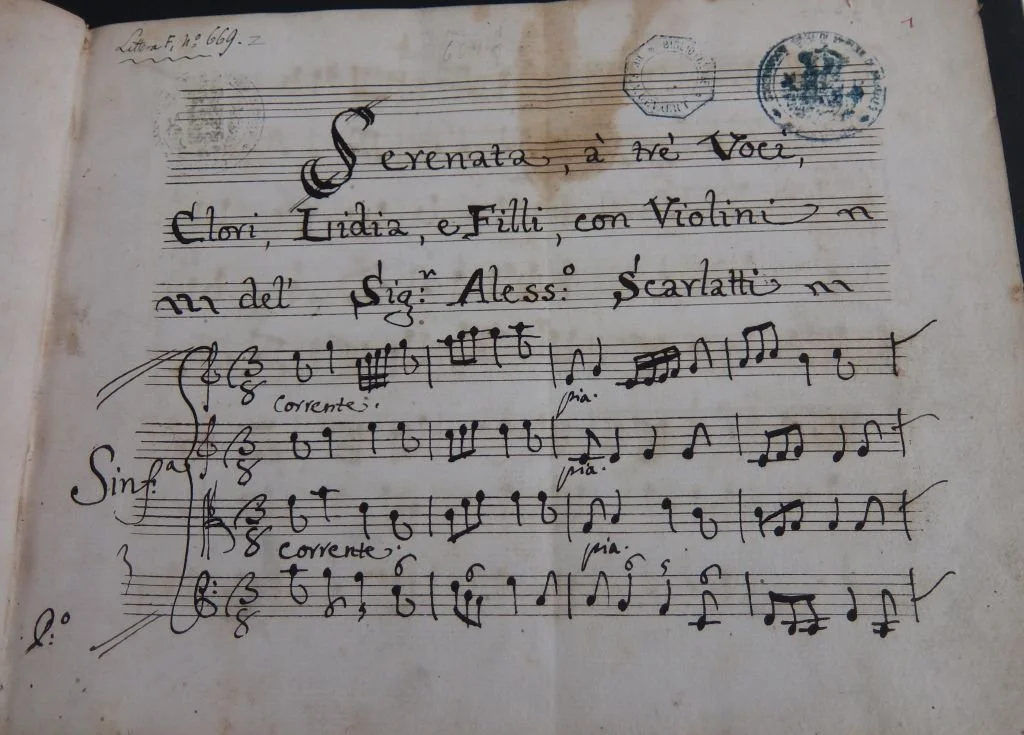 Littera F, nº 669. 2
1
Serenata, à trè Voci,
Clori, Lidia, e Filli, con Violini
del' Sig:r Aless:o Scarlatti
3 8
Corrente.
pia.
3 8
pia.
Sinf:a
3 8
Corrente.
pia.
3 8
6 6 6 5 6